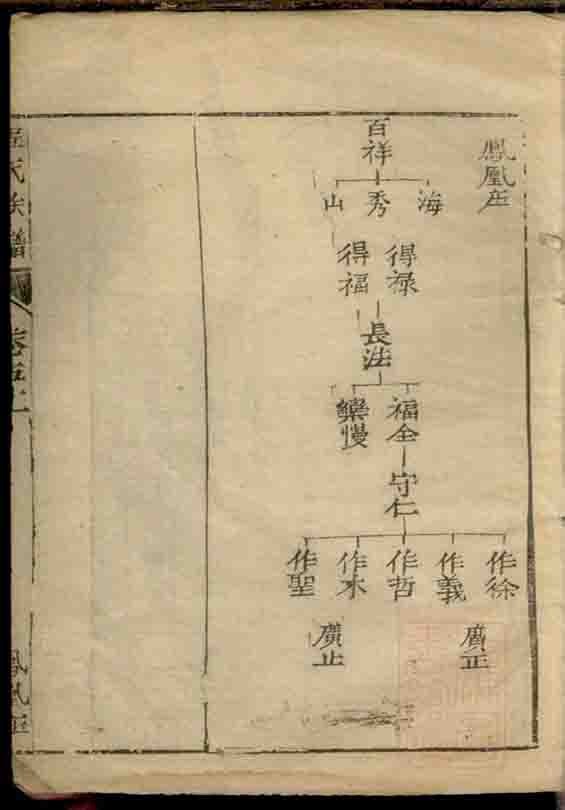 鳳凰庄
百祥
海
秀
山
得禄
得福
長法
福全
樂慢
守仁
作徐
作義
作哲
作水
作聖
廣正
廣止
氏族譜
鳳凰庄